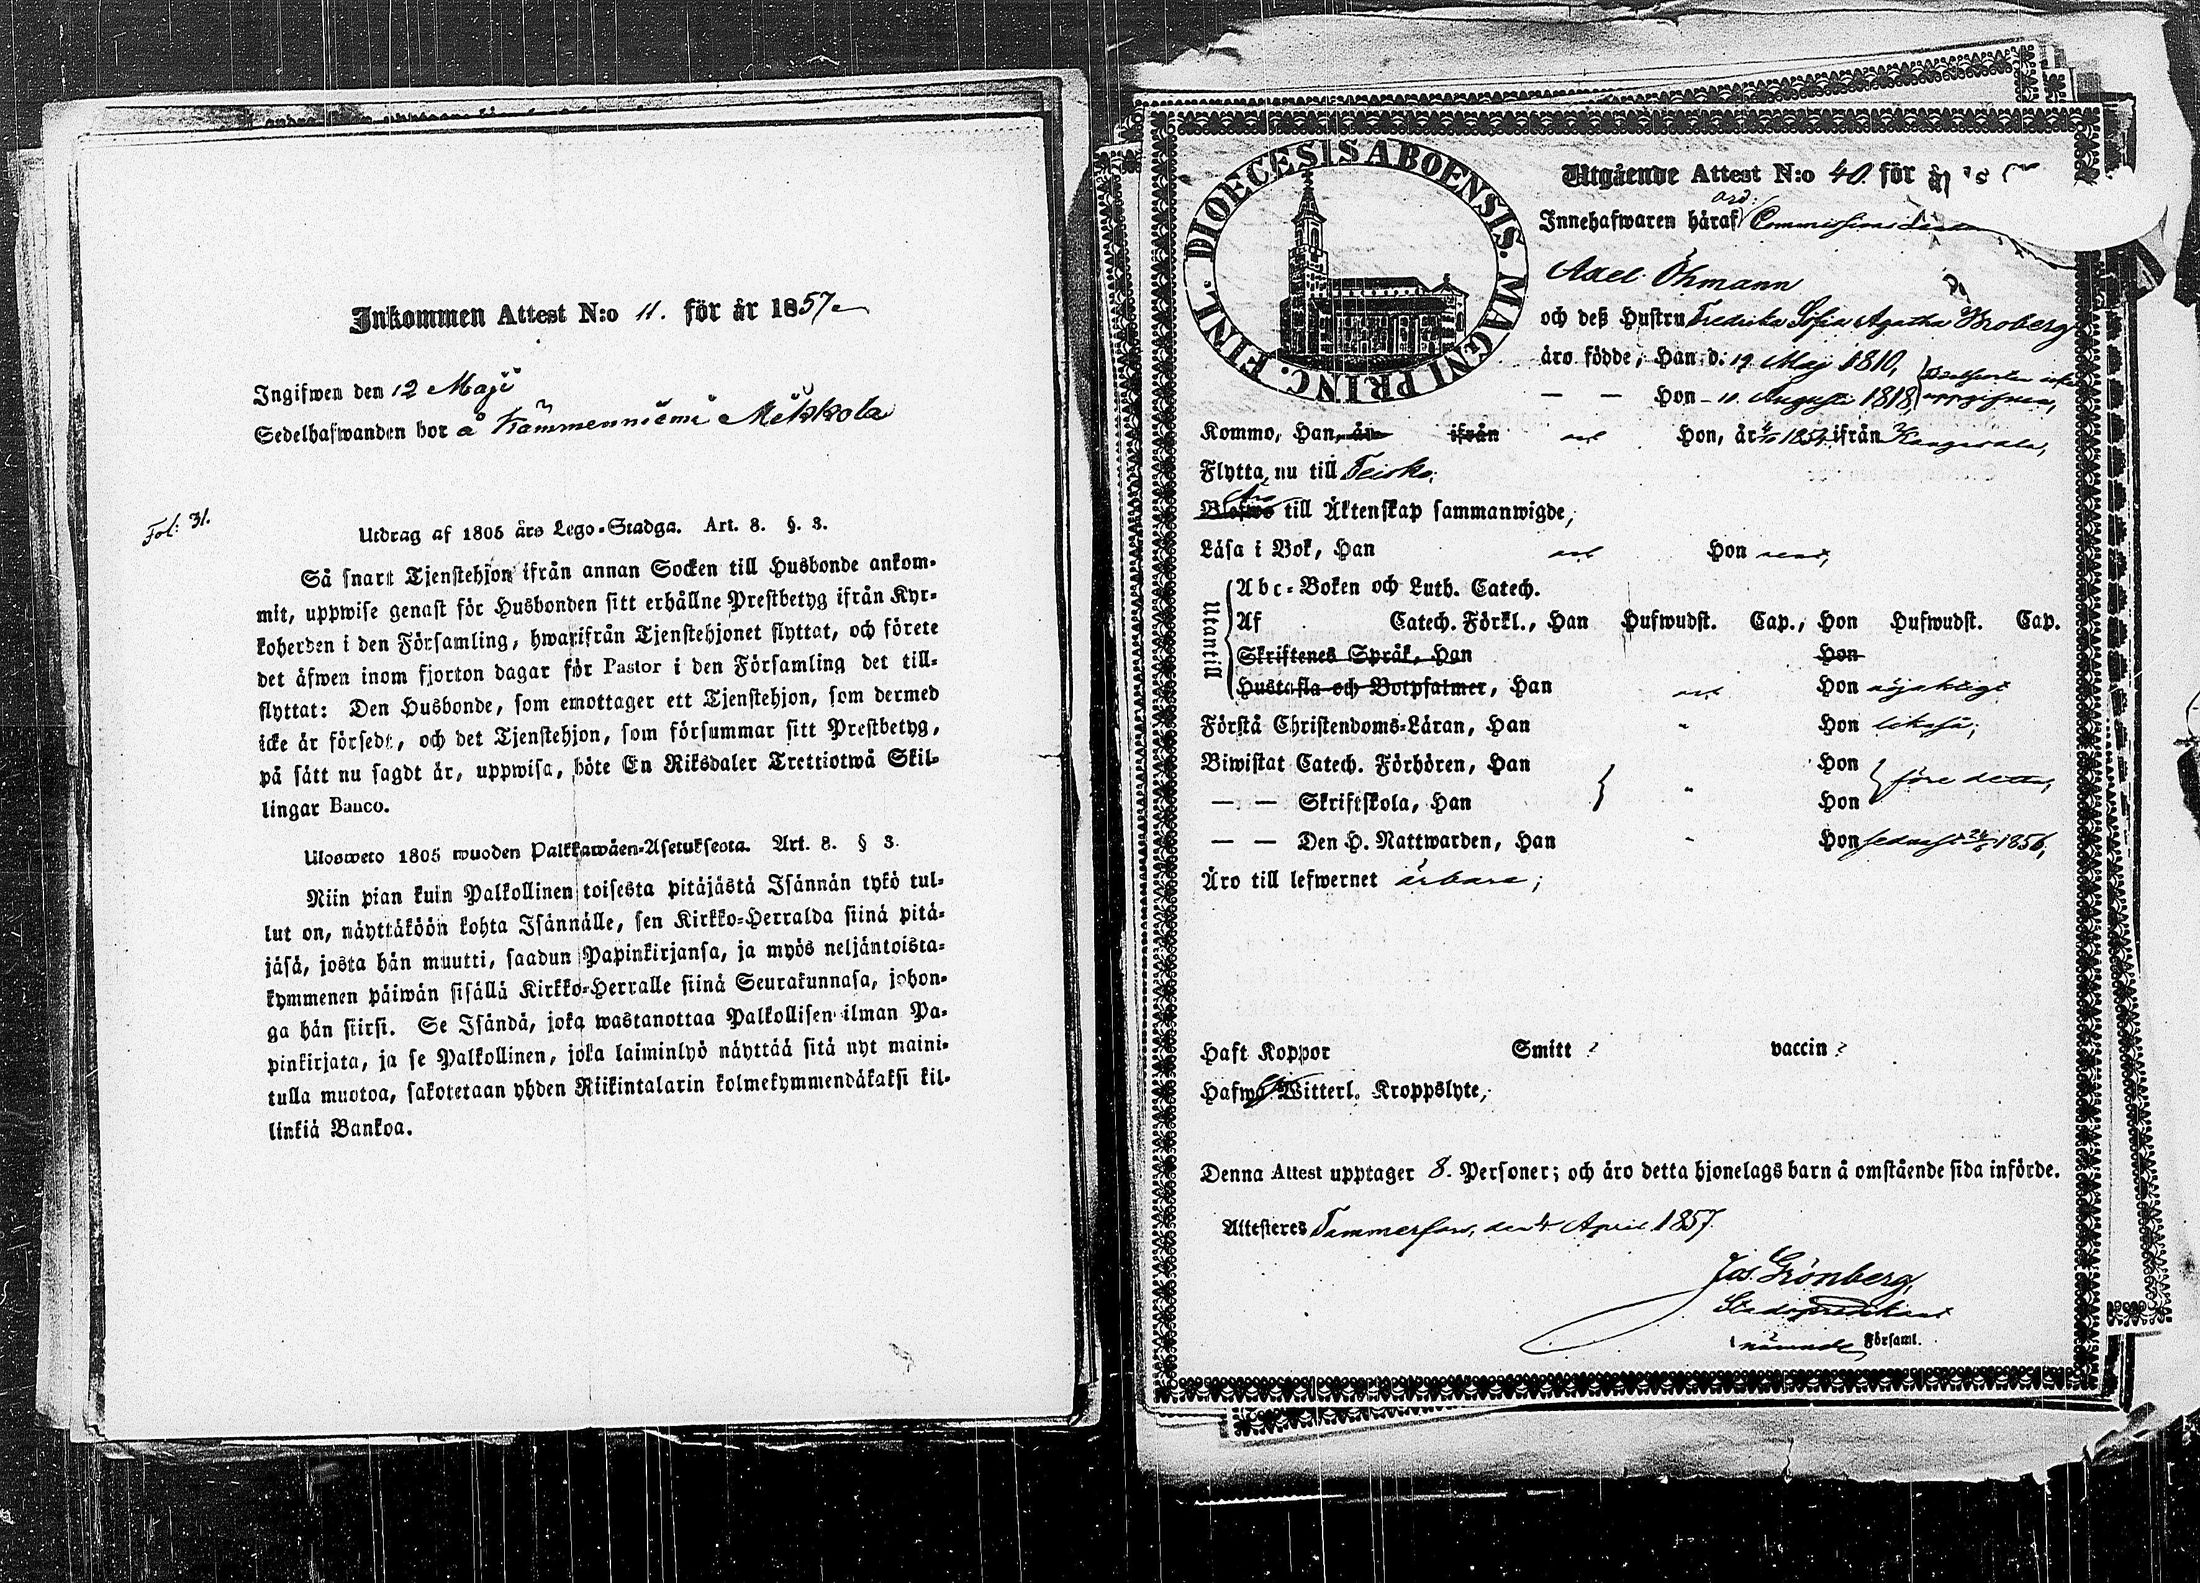 Inkommen Attest N:o 11. för år 1857
Ingifwen den 12 Maji
Sedelhafwanden bor å Kämmenniemi Mikkola
Fol: 31.
Utdrag af 1805 års Lego-Stadga. Art. 8. §. 3.
Så snart Tjenstehjon ifrån annan Socken till Husbonde ankom-
mit, uppwise genast för Husbonden sitt erhållne Prestbetyg ifrån Kyr-
koherden i den Församling, hwarifrån Tjenstehjonet flyttat, och förete
det äfwen inom fjorton dagar för Pastor i den Församling det till-
flyttat: Den Husbonde, som emottager ett Tjenstehjon, som dermed
icke är försedt, och det Tjenstehjon, som försummar sitt Prestbetyg,
på sätt nu sagdt är, uppwisa, böte En Riksdaler Trettiotwå Skil-
lingar Banco.
Ulosweto 1805 wuoden Palkkawäen-Asetuksesta. Art. 8. § 3.
Niin pian kuin Palkollinen toisesta pitäjästä Isännän tykö tul-
lut on, näyttäköön kohta Isännälle, sen Kirkko-Herralda siinä pitä-
jäsä, josta hän muutti, saadun Papinkirjansa, ja myös neljäntoista-
kymmenen päiwän sisällä Kirkko-Herralle siinä Seurakunnasa, johon-
ga hän siirsi. Se Isändä, joka wastanottaa Palkollisen ilman Pa-
pinkirjata, ja se Palkollinen, joka laiminlyö näyttää sitä nyt maini-
tulla muotoa, sakotetaan yhden Riikintalarin kolmekymmendäkaksi kil-
linkiä Bankoa.
DIOECESIS ABOENSIS. MAGNI PRINC. FINL.
Utgående Attest N:o 40. för år 18
ord:
Innehafwaren häraf Commissions
Axel Öhmann
och deß Hustru Fredrika Sofia Agatha Broberg
äro födde, Han d: 19 Maj 1810,
— — Hon - 11. Augusti 1818, uppgifven,
Kommo, Han, år ifrån Hon, år 1854 ifrån Kangasala,
Flytta, nu till Teisko;
Äro
Blefwo till Äktenskap sammanwigde,
Läsa i Bok, Han Hon
Utantill
Abc-Boken och Luth. Catech.
Af Catech. Förkl., Han Hufwudst. Cap., Hon Hufwudst. Cap.
Skriftenes Språk, Han Hon
Hustafla och Botpsalmer, Han Hon nöjaktigt
Förstå Christendoms-Läran, Han " Hon likaså;
Biwistat Catech. Förhören, Han Hon
före detta,
— — Skriftskola, Han " Hon
— — Den H. Nattwarden, Han " Hon sednast 1856,
Äro till lefwernet ärbara;
Haft Koppor Smitt ? vaccin ?
Hafwa Witterl. Kroppslyte,
Denna Attest upptager 8. Personer; och äro detta hjonelags barn å omstående sida införde.
Attesteres Tammerfors, den 4 April 1857.
Jos. Grönberg,
Stadspredikant
i nämnde Församl.